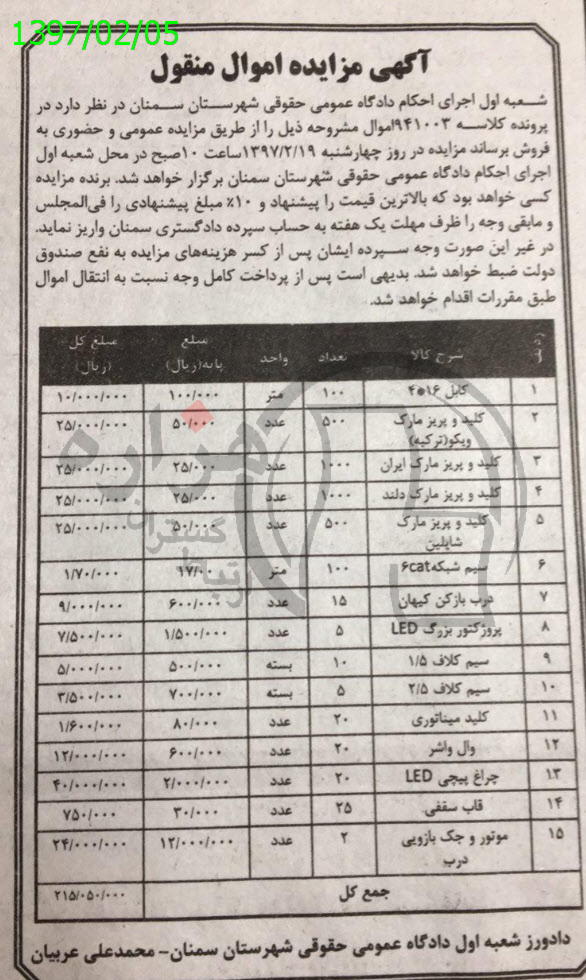 1397/02/05
آگهی مزایده اموال منقول
شعبه اول اجرای احکام دادگاه عمومی حقوقی شهرستان سمنان در نظر دارد در
پرونده کلاسه ۹۴۱۰۰۳اموال مشروحه ذیل را از طریق مزایده عمومی و حضوری به
فروش برساند مزایده در روز چهارشنبه ۱۳۹۷/۲/۱۹ساعت ۱۰صبح در محل شعبه اول
اجرای احکام دادگاه عمومی حقوقی شهرستان سمنان برگزار خواهد شد. برنده مزایده
کسی خواهد بود که بالاترین قیمت را پیشنهاد و ۱۰٪ مبلغ پیشنهادی را فی‌المجلس
و مابقی وجه را ظرف مهلت یک هفته به حساب سپرده دادگستری سمنان واریز نماید.
در غیر این صورت وجه سپرده ایشان پس از کسر هزینه‌های مزایده به نفع صندوق
دولت ضبط خواهد شد. بدیهی است پس از پرداخت کامل وجه نسبت به انتقال اموال
طبق مقررات اقدام خواهد شد.
ردیف شرح کالا تعداد واحد مبلغ پایه(ریال) مبلغ کل (ریال)
۱ کابل ۱۶*۴ ۱۰۰ متر ۱۰۰/۰۰۰ ۱۰/۰۰۰/۰۰۰
۲ کلید و پریز مارک ۵۰۰ عدد ۵۰/۰۰۰ ۲۵/۰۰۰/۰۰۰
ویکو(ترکیه)
۳ کلید و پریز مارک ایران ۱۰۰۰ عدد ۲۵/۰۰۰ ۲۵/۰۰۰/۰۰۰
۴ کلید و پریز مارک دلند ۱۰۰۰ عدد ۲۵/۰۰۰ ۲۵/۰۰۰/۰۰۰
۵ کلید و پریز مارک ۵۰۰ عدد ۵۰/۰۰۰ ۲۵/۰۰۰/۰۰۰
شاپلین
۶ سیم شبکه۶cat ۱۰۰ متر ۱۷/۰۰ ۱/۷۰/۰۰۰
۷ درب بازکن کیهان ۱۵ عدد ۶۰۰/۰۰۰ ۹/۰۰۰/۰۰۰
۸ پروژکتور بزرگ LED ۵ عدد ۱/۵۰۰/۰۰۰ ۷/۵۰۰/۰۰۰
۹ سیم کلاف ۱/۵ ۱۰ بسته ۵۰۰/۰۰۰ ۵/۰۰۰/۰۰۰
۱۰ سیم کلاف ۲/۵ ۵ بسته ۷۰۰/۰۰۰ ۳/۵۰۰/۰۰۰
۱۱ کلید میناتوری ۲۰ عدد ۸۰/۰۰۰ ۱/۶۰۰/۰۰۰
۱۲ وال واشر ۲۰ عدد ۶۰۰/۰۰۰ ۱۲/۰۰۰/۰۰۰
۱۳ چراغ پیچی LED ۲۰ عدد ۲/۰۰۰/۰۰۰ ۴۰/۰۰۰/۰۰۰
۱۴ قاب سقفی ۲۵ عدد ۳۰/۰۰۰ ۷۵۰/۰۰۰
۱۵ موتور و جک بازویی ۲ عدد ۱۲/۰۰۰/۰۰۰ ۲۴/۰۰۰/۰۰۰
درب
جمع کل ۲۱۵/۰۵۰/۰۰۰
دادورز شعبه اول دادگاه عمومی حقوقی شهرستان سمنان- محمدعلی عربیان